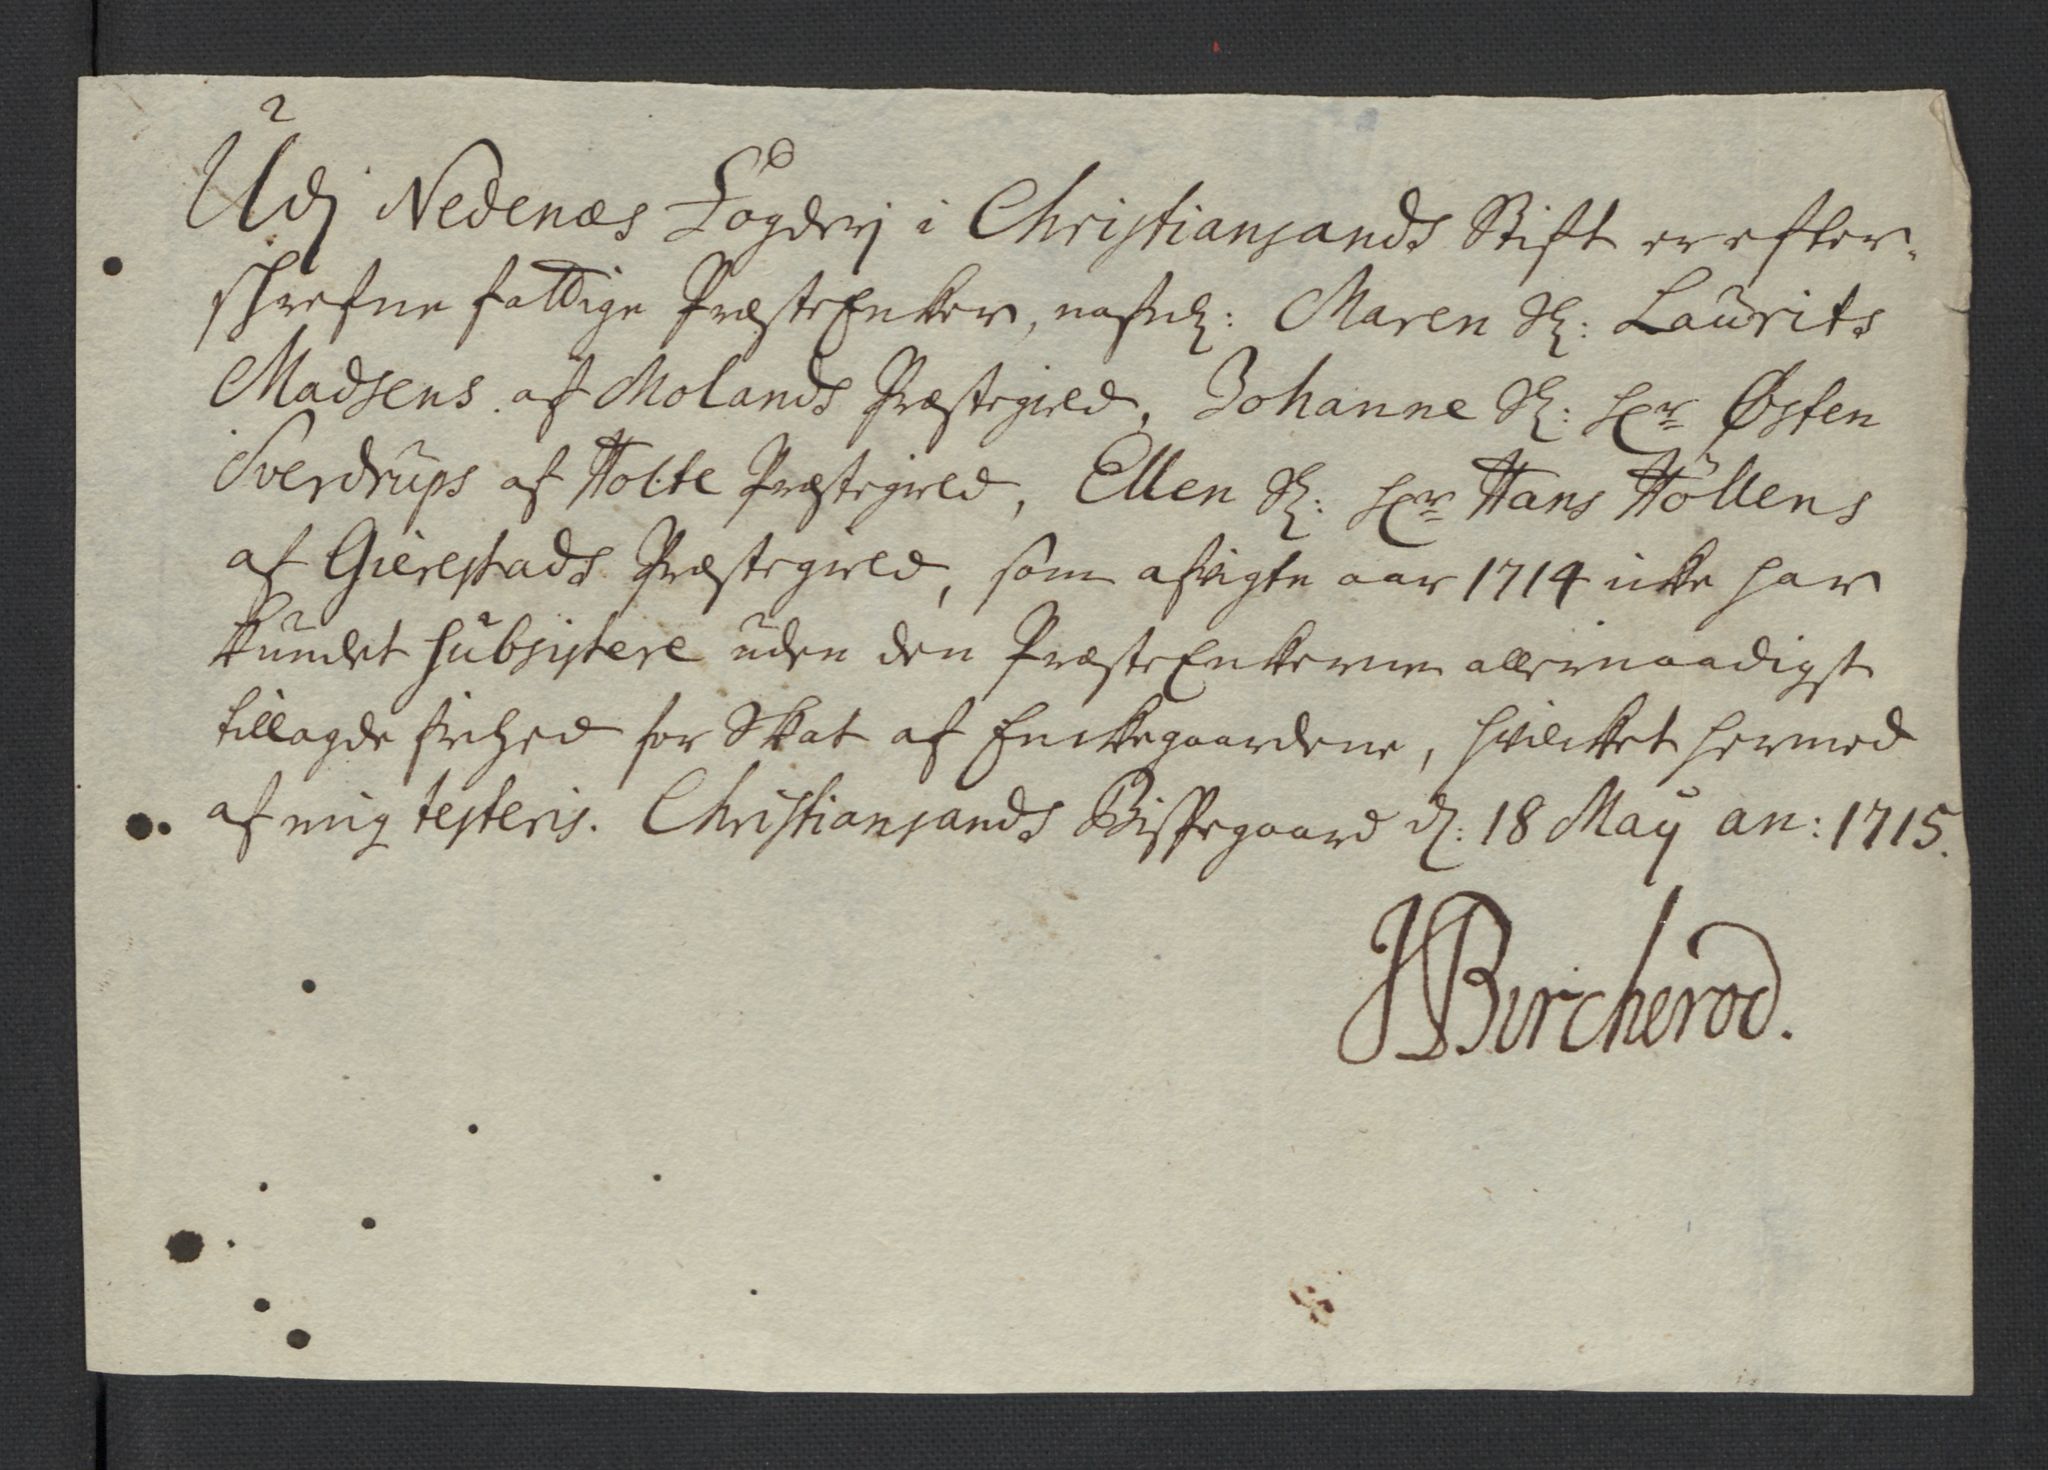 Udj Nedenæs Fogderj i Christiansands Stift er efter-
skrefne fattige PræsteEnker, nafnl: Maren Sl: Laurits
Madsens af Molands Præstegield, Johanne Sl: Hr Østen
Sverdrups af Holte Præstegield, Ellen Sl: Hr Hans Höllens
af Gierestads Præstegield, som afvigte aar 1714 icke har
kundet subsistere uden den PræsteEnkerne allernaadigst
tillagde frihed for Skat af Enckegaardene, hvilcket hermed
af mig testeris. Christiansands Bispegaard d: 18 Maÿ an: 1715.
JBircherod.